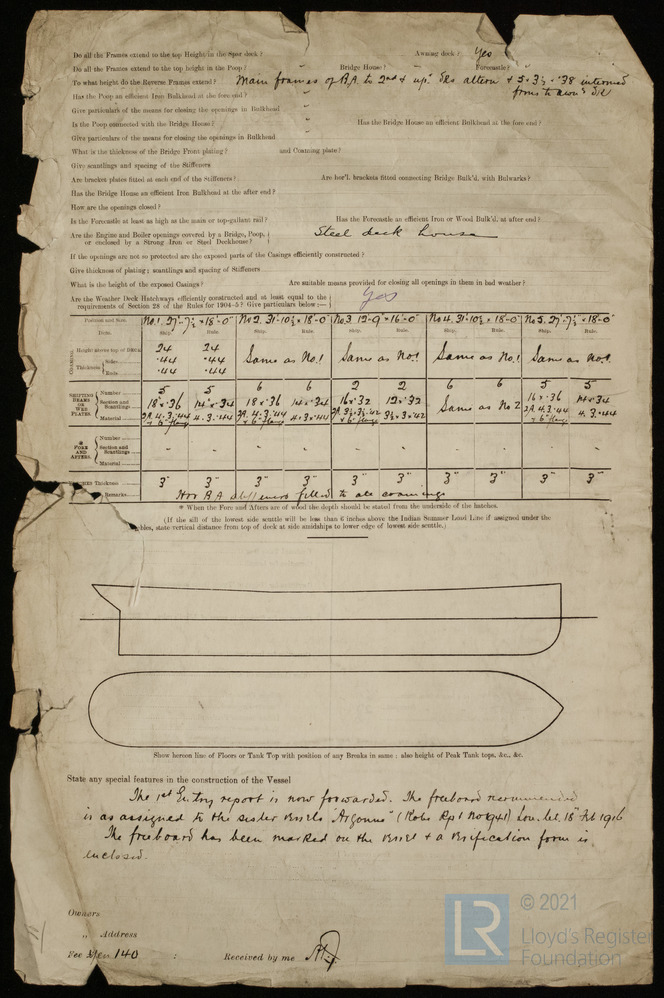 Do all the Frames extend to the top Height in the Spar deck? Awning deck? Yes
Do all the Frames extend to the top height in the Poop? Bridge House? Forecastle?
To what height do the Reverse Frames extend? Main frames of B.A. to 2nd & up: dks altern & 5 · 3½ · ·38
Has the Poop an efficient Iron Bulkhead at the fore end?
Give particulars of the means for closing the openings in Bulkhead
Is the Poop connected with the Bridge House? Has the Bridge House an efficient Bulkhead at the fore end?
Give particulars of the means for closing the openings in Bulkhead
What is the thickness of the Bridge Front plating? and Coaming plate?
Give scantlings and spacing of the Stiffeners
Are bracket plates fitted at each end of the Stiffeners? Are hor'l. brackets fitted connecting Bridge Bulk'd. with Bulwarks?
Has the Bridge House an efficient Iron Bulkhead at the after end?
How are the openings closed?
Is the Forecastle at least as high as the main or top-gallant rail? Has the Forecastle an efficient Iron or Wood Bulk'd. at after end?
Are the Engine and Boiler openings covered by a Bridge, Poop, or enclosed by a Strong Iron or Steel Deckhouse? Steel deck house
If the openings are not so protected are the exposed parts of the Casings efficiently constructed?
Give thickness of plating; scantlings and spacing of Stiffeners
What is the height of the exposed Casings? Are suitable means provided for closing all openings in them in bad weather?
Are the Weather Deck Hatchways efficiently constructed and at least equal to the requirements of Section 28 of the Rules for 1904-5? Give particulars below:— Yes
Position and Size. No.1. 27'-7½ × 18'-0" No 2. 31'-10½ × 18'-0" No 3. 12'-9" × 16'-0" No 4. 31'-10½ × 18'-0" No 5. 27'-7½ × 18'-0"
Item. Ship. Rule. Ship. Rule. Ship. Rule. Ship. Rule. Ship. Rule.
COAMING Height above top of Deck 24 24 Same as No.1 Same as No.1 Same as No.1 Same as No.1
Thickness Sides ·44 ·44
Ends ·44 ·44
SHIFTING BEAMS OR WEB PLATES Number 5 5 6 6 2 2 6 6 5 5
Section and Scantlings 18 × ·36 14 × ·34 18 × ·36 14 × ·34 16 × ·32 12 × ·32 Same as No 2 16 × ·36 14 × ·34
Material 2A 4.3.·44 & 6" flange 4.3.·44 2A 4.3.·44 & 6" flange 4.3.·44 2A 3½.3½.·42 & 6" flange 3½ × 3 × ·42 2A 4.3.·44 & 6" flange 4.3.·44
* FORE AND AFTERS. Number
Section and Scantlings - - - - - - - - - -
Material
Thickness 3" 3" 3" 3" 3" 3" 3" 3" 3" 3"
Remarks. Hor B.A stiffeners fitted to all coamings
* When the Fore and Afters are of wood the depth should be stated from the underside of the hatches.
(If the sill of the lowest side scuttle will be less than 6 inches above the Indian Summer Load Line if assigned under the
bles, state vertical distance from top of deck at side amidships to lower edge of lowest side scuttle.)
Show hereon line of Floors or Tank Top with position of any Breaks in same: also height of Peak Tank tops, &c., &c.
State any special features in the construction of the Vessel
The 1st Entry report is now forwarded. The freeboard recommended
is as assigned to the sister vessels "Argonne" (Kobe Rpt No 941) Lon. let. 18th Feb 1916
The freeboard has been marked on the vessel & a verification form is
enclosed.
Owners
" Address
Fee Yen 140 : Received by me
LR
© 2021
Lloyd's Register
Foundation